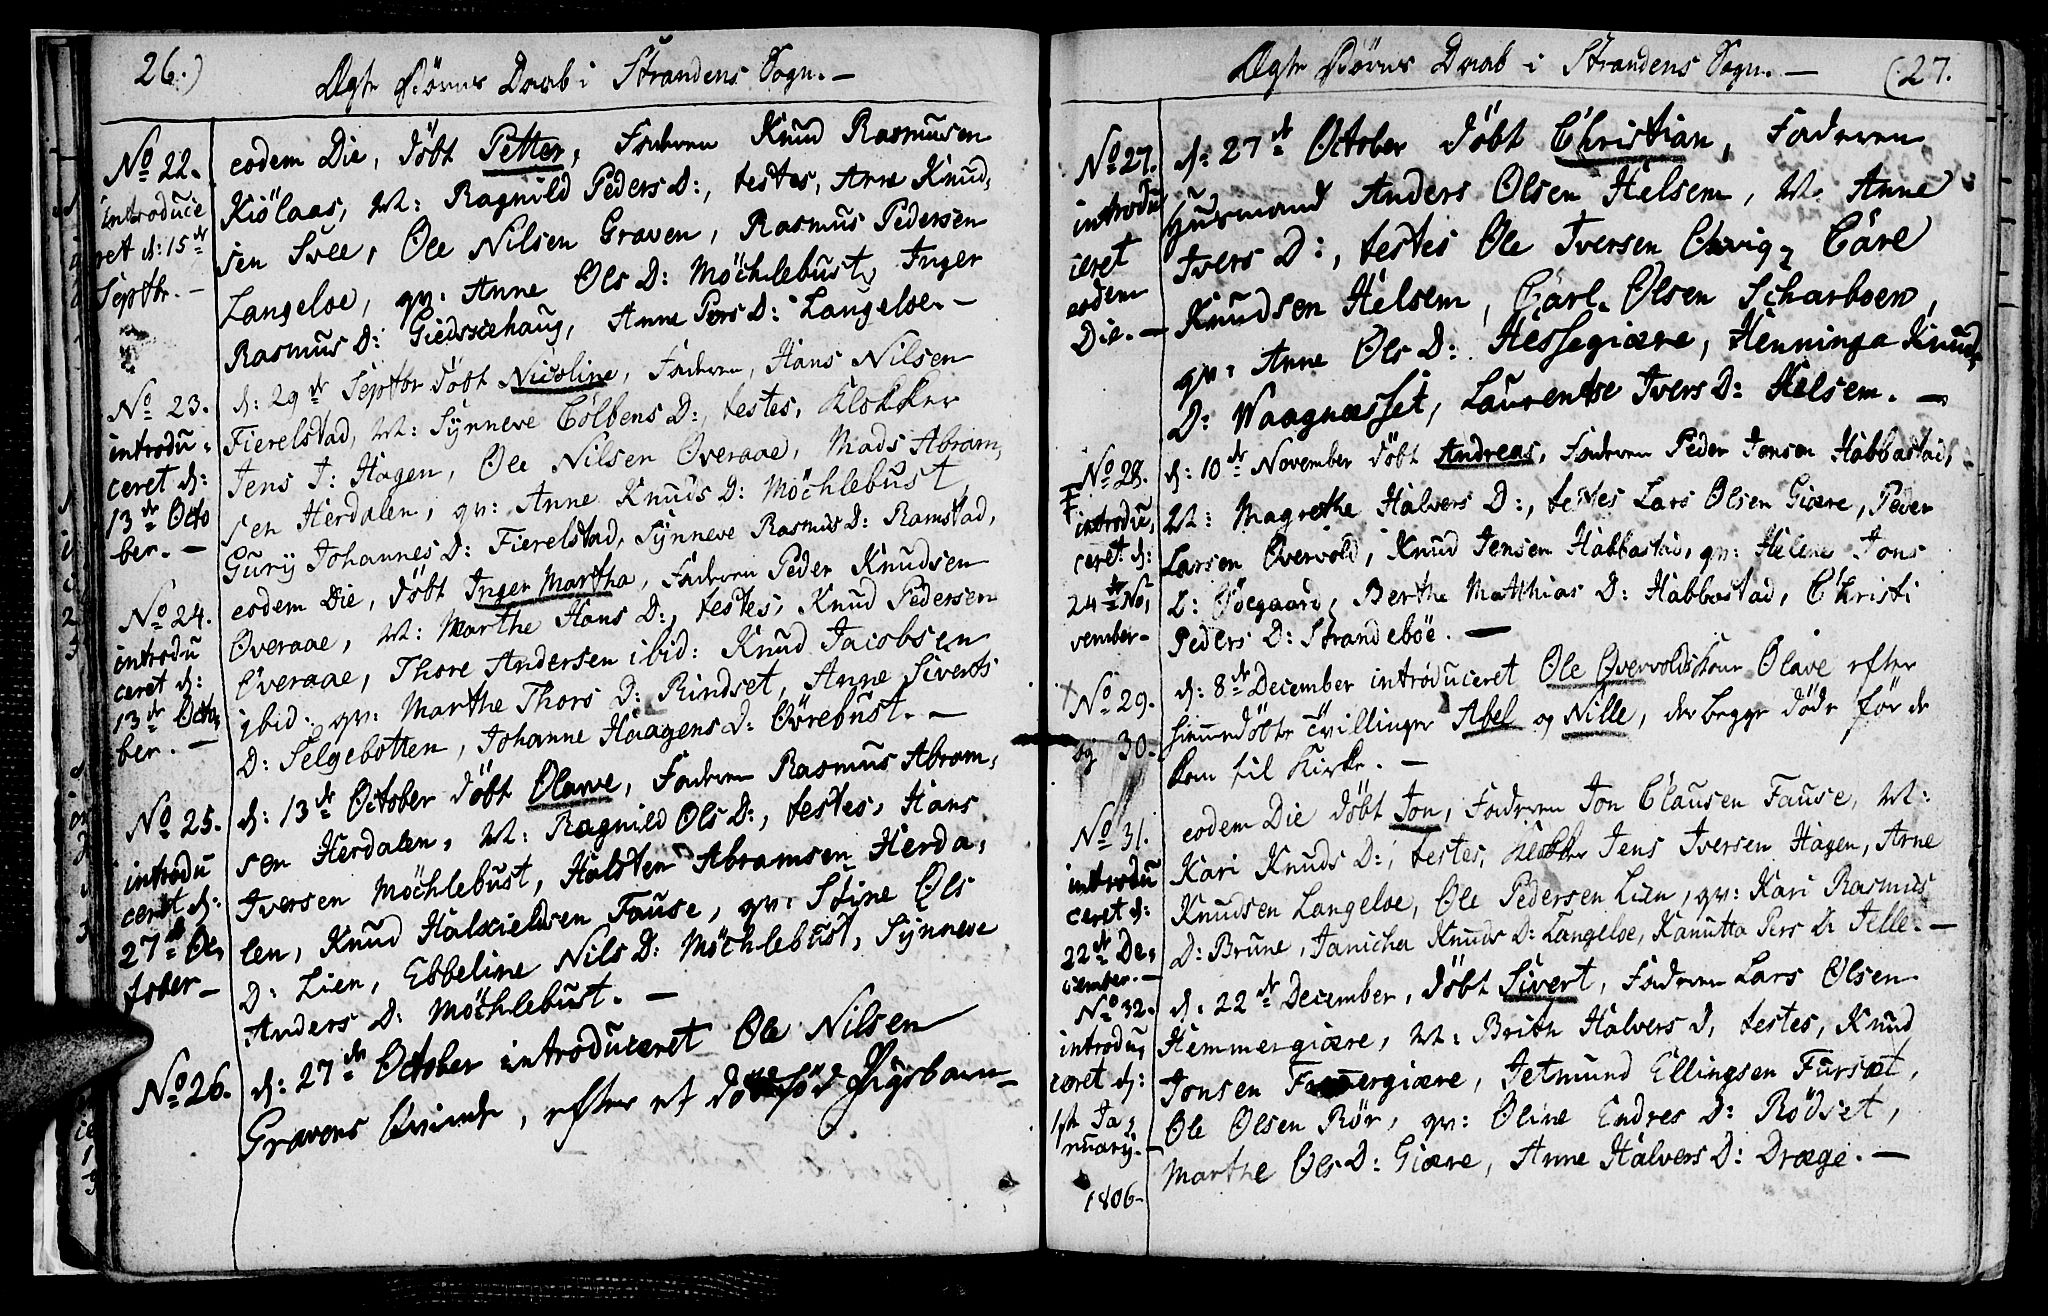 26.)
Ægte Børns Daab i Strandens Sogn. —
No 22.
introduce
ret d: 15de
Septbr. —
eodem Die, døbt Petter, Faderen Knud Rasmusen
Kiölaas, M: Ragnild Peders D:, testes, Arne Knud,
sen Svee, Ole Nilsen Graven, Rasmus Pedersen
Langeloe, qv: Anne Ols D: Möchlebust, Inger
Rasmus D: Giedschehaug, Anne Pers D: Langeloe. —
No 23.
introdu,
ceret d:
13de Octo
ber. —
d: 29de Septbr döbt Nicoline, Faderen, Hans Nilsen
Fierelstad, M: Synneve Colbens D:, testes, Klokker
Jens I: Hagen, Ole Nilsen Overaae, Mads Abram,
sen Herdalen, qv: Anne Knuds D: Möchlebust,
Gury Johannes D: Fierelstad, Synneve Rasmus D: Ramstad,
No 24.
introdu
ceret d:
13de Octo,
ber. —
eodem Die, döbt Inger Martha, Faderen Peder Knudsen
Overaae, M: Marthe Hans D:, testes, Knud Pedersen
Overaae, Thore Andersen ibid: Knud Jacobsen
ibid: qv: Marthe Thors D: Rindset, Anne Siverts
D: Selgebotten, Johanne Haagens D: Övrebust. —
No 25.
introdu
ceret d:
27de Oc,
tober —
d: 13de October döbt Olave, Faderen Rasmus Abram,
sen Herdalen, M: Ragnild Ols D:, testes, Hans
Iversen Möchlebust, Halsten Abramsen Herda,
len, Knud Halkieldsen Fause, qv: Stine Ols
D: Lien, Ebbeline Nils D: Möchlebust, Synneve
Anders D: Möchlebust. —
No 26.
d: 27de October introduceret Ole Nilsen
Gravens Qvinde, efter et dödföd Pigebarn —
Ægte Børns Daab i Strandens Sogn. —
(27.
No 27.
introdu
ceret
eodem
Die. —
d: 27de October döbt Christian, Faderen
Huusmand Anders Olsen Helsem, M: Anne
Ivers D:, testes Ole Iversen Care
Knudsen Helsem, Carl Olsen Scharboen,
qv: Anne Ols D: Hessegiære, Henninga Knud,
D: Waagnæsset, Laurentse Ivers D: Helsem. —
No 28.
introdu,
ceret d:
24de No,
vember —
d: 10de November döbt Andreas, Faderen Peder Jonsen Habbastad,
M: Magrethe Halvers D:, testes Lars Olsen Giære, Peder
Larsen Overvold, Knud Jensen Habbastad, qv: Helene Jons
D: Öiegaard, Berthe Mathias D: Habbastad, Christi
Peders D: Strandeböe. —
No 29.
og 30.
d: 8de December introduceret Ole Overvolds Kone Olave efter
hiemmedöbte Tvillinger Abel og Nille, der begge döde för de
kom til Kirke. —
No 31.
introdu
ceret d:
22de De,
cember. —
eodem Die döbt Jon, Faderen Jon Clausen Fause, M:
Kari Knuds D:, testes, Klokker Jens Iversen Hagen, Arne
Knudsen Langeloe, Ole Pedersen Lien, qv: Kari Rasmus
D: Brune, Janicha Knuds D: Langeloe, Kanutta Pers D: Jelle. —
No 32.
introdu,
ceret d:
1ste Ja,
nuary. —
1806 —
d: 22de December, döbt Sivert, Faderen Lars Olsen
Hemmergiære, M: Brith Halvers D, testes, Knud
Jonsen Jetmund Ellingsen Furset,
Ole Olsen Rör, qv: Oline Endres D: Rödset,
Marthe Ols D: Giære, Anne Halvers D: Dræge. —